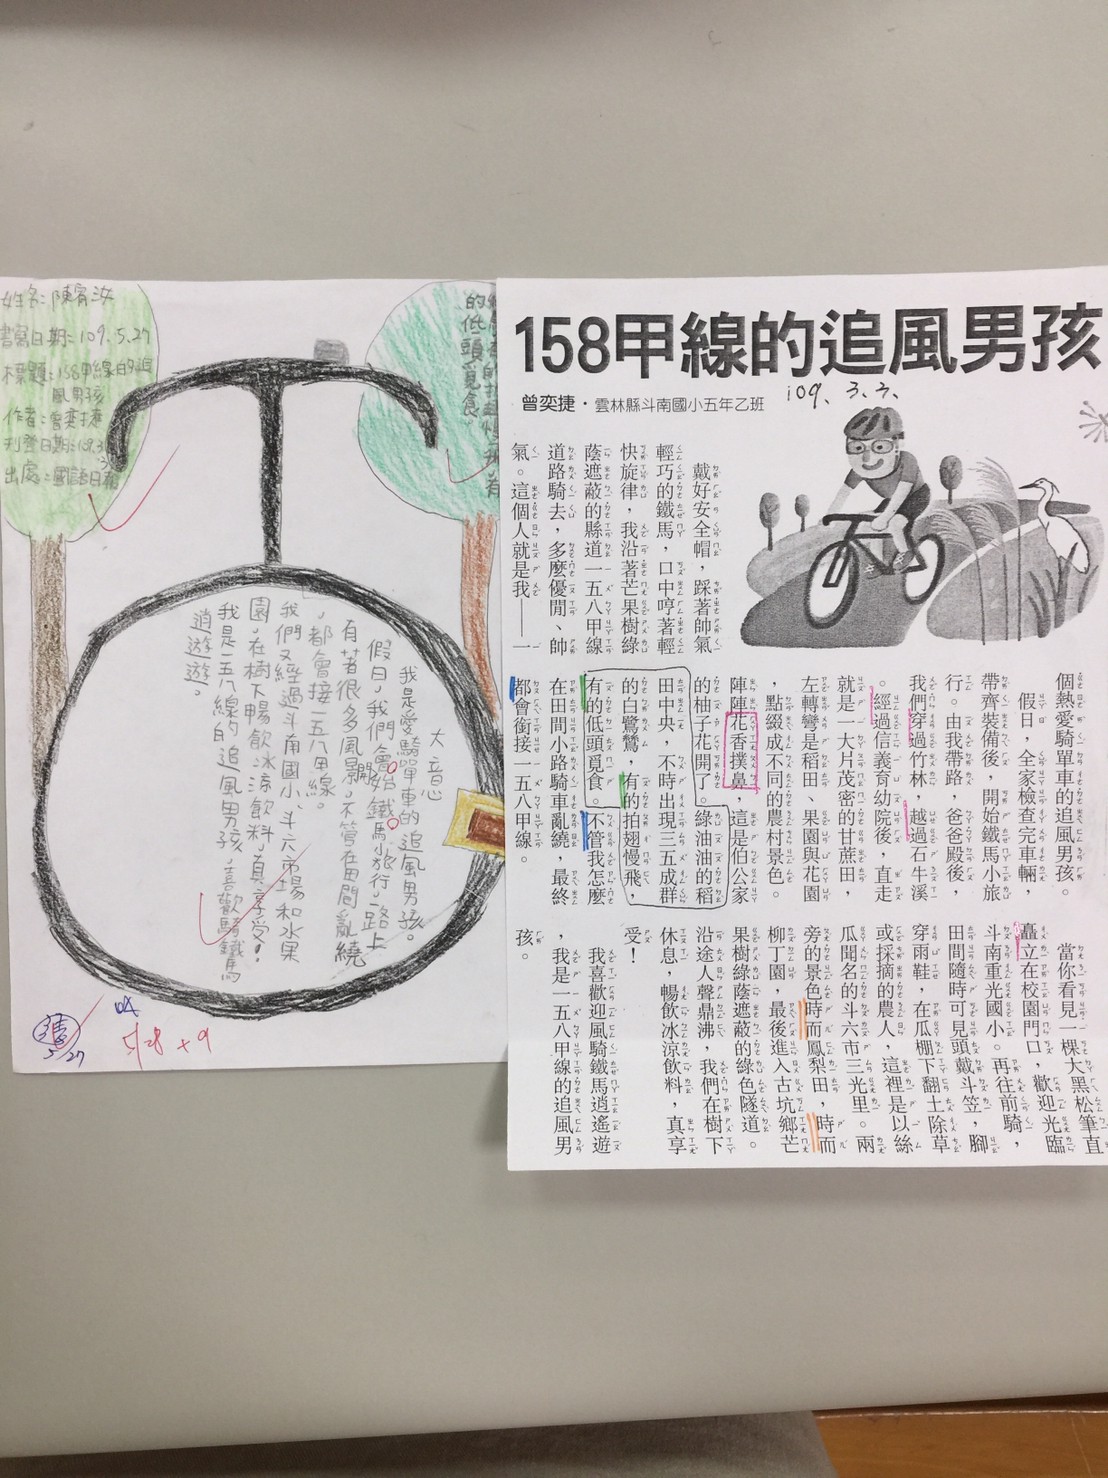 姓名:陳宥汝
書寫日期:109.5.27
標題:158甲線的追
風男孩
作者:曾奕捷
刊登日期:109.3.3
出處:國語日報
的低頭覓食。
大意
我是愛騎單車的追風男孩。
假日,我們會開始鐵馬小旅行,一路上
有著很多風景,不管在田間亂繞
,都會接一五八甲線。
我們又經過斗南國小、斗六市場和水果
園,在樹下暢飲冰涼飲料,真享受!
我是一五八線的追風男孩,喜歡騎鐵馬
逍遊遊。
5/27
5/28 +9
158甲線的追風男孩
109.3.3.
曾奕捷・雲林縣斗南國小五年乙班
戴好安全帽,踩著帥氣
輕巧的鐵馬,口中哼著輕
快旋律,我沿著芒果樹綠
蔭遮蔽的縣道一五八甲線
道路騎去,多麼優閒、帥
氣。這個人就是我——一
個熱愛騎單車的追風男孩。
假日,全家檢查完車輛,
帶齊裝備後,開始鐵馬小旅
行。由我帶路,爸爸殿後,
我們穿過竹林,越過石牛溪
。經過信義育幼院後,直走
就是一大片茂密的甘蔗田,
左轉彎是稻田、果園與花園
,點綴成不同的農村景色。
陣陣花香撲鼻,這是伯公家
的柚子花開了。綠油油的稻
田中央,不時出現三五成群
的白鷺鷥,有的拍翅慢飛,
有的低頭覓食。不管我怎麼
在田間小路騎車亂繞,最終
都會銜接一五八甲線。
當你看見一棵大黑松筆直
矗立在校園門口,歡迎光臨
斗南重光國小。再往前騎,
田間隨時可見頭戴斗笠,腳
穿雨鞋,在瓜棚下翻土除草
或採摘的農人,這裡是以絲
瓜聞名的斗六市三光里。兩
旁的景色時而鳳梨田,時而
柳丁園,最後進入古坑鄉芒
果樹綠蔭遮蔽的綠色隧道。
沿途人聲鼎沸,我們在樹下
休息,暢飲冰涼飲料,真享
受!
我喜歡迎風騎鐵馬逍遙遊
,我是一五八甲線的追風男
孩。